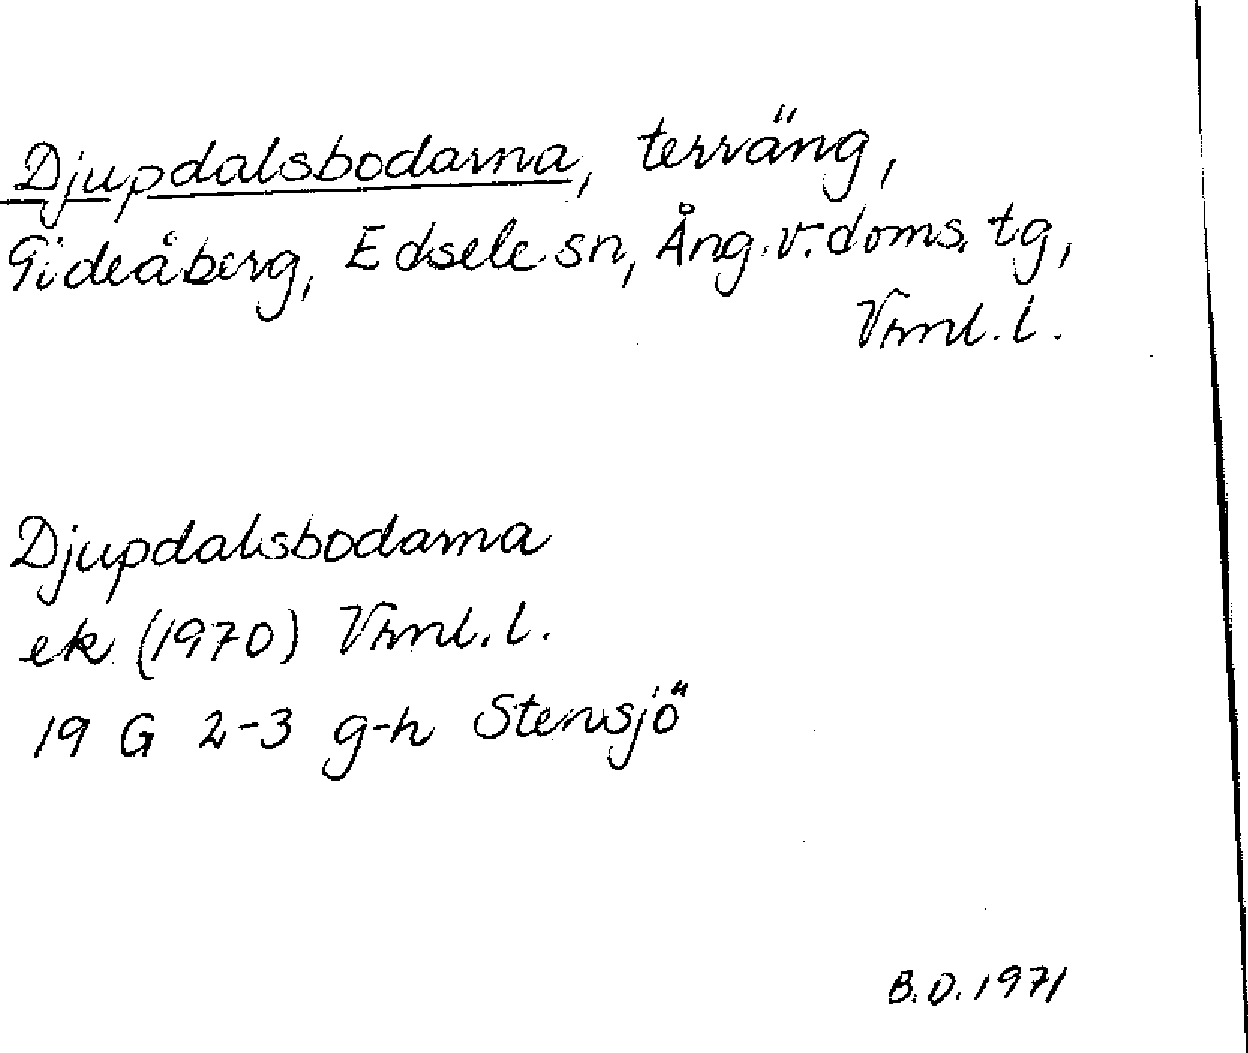 Djupdalsbodarna, terräng,
Gideåberg, Edsele sn, Ång. v. doms. tg,
Vrnl. l.
Djupdalsbodarna
ek (1970) Vrnl. l.
19 G 2-3 g-h Stensjö
B.D. 1971